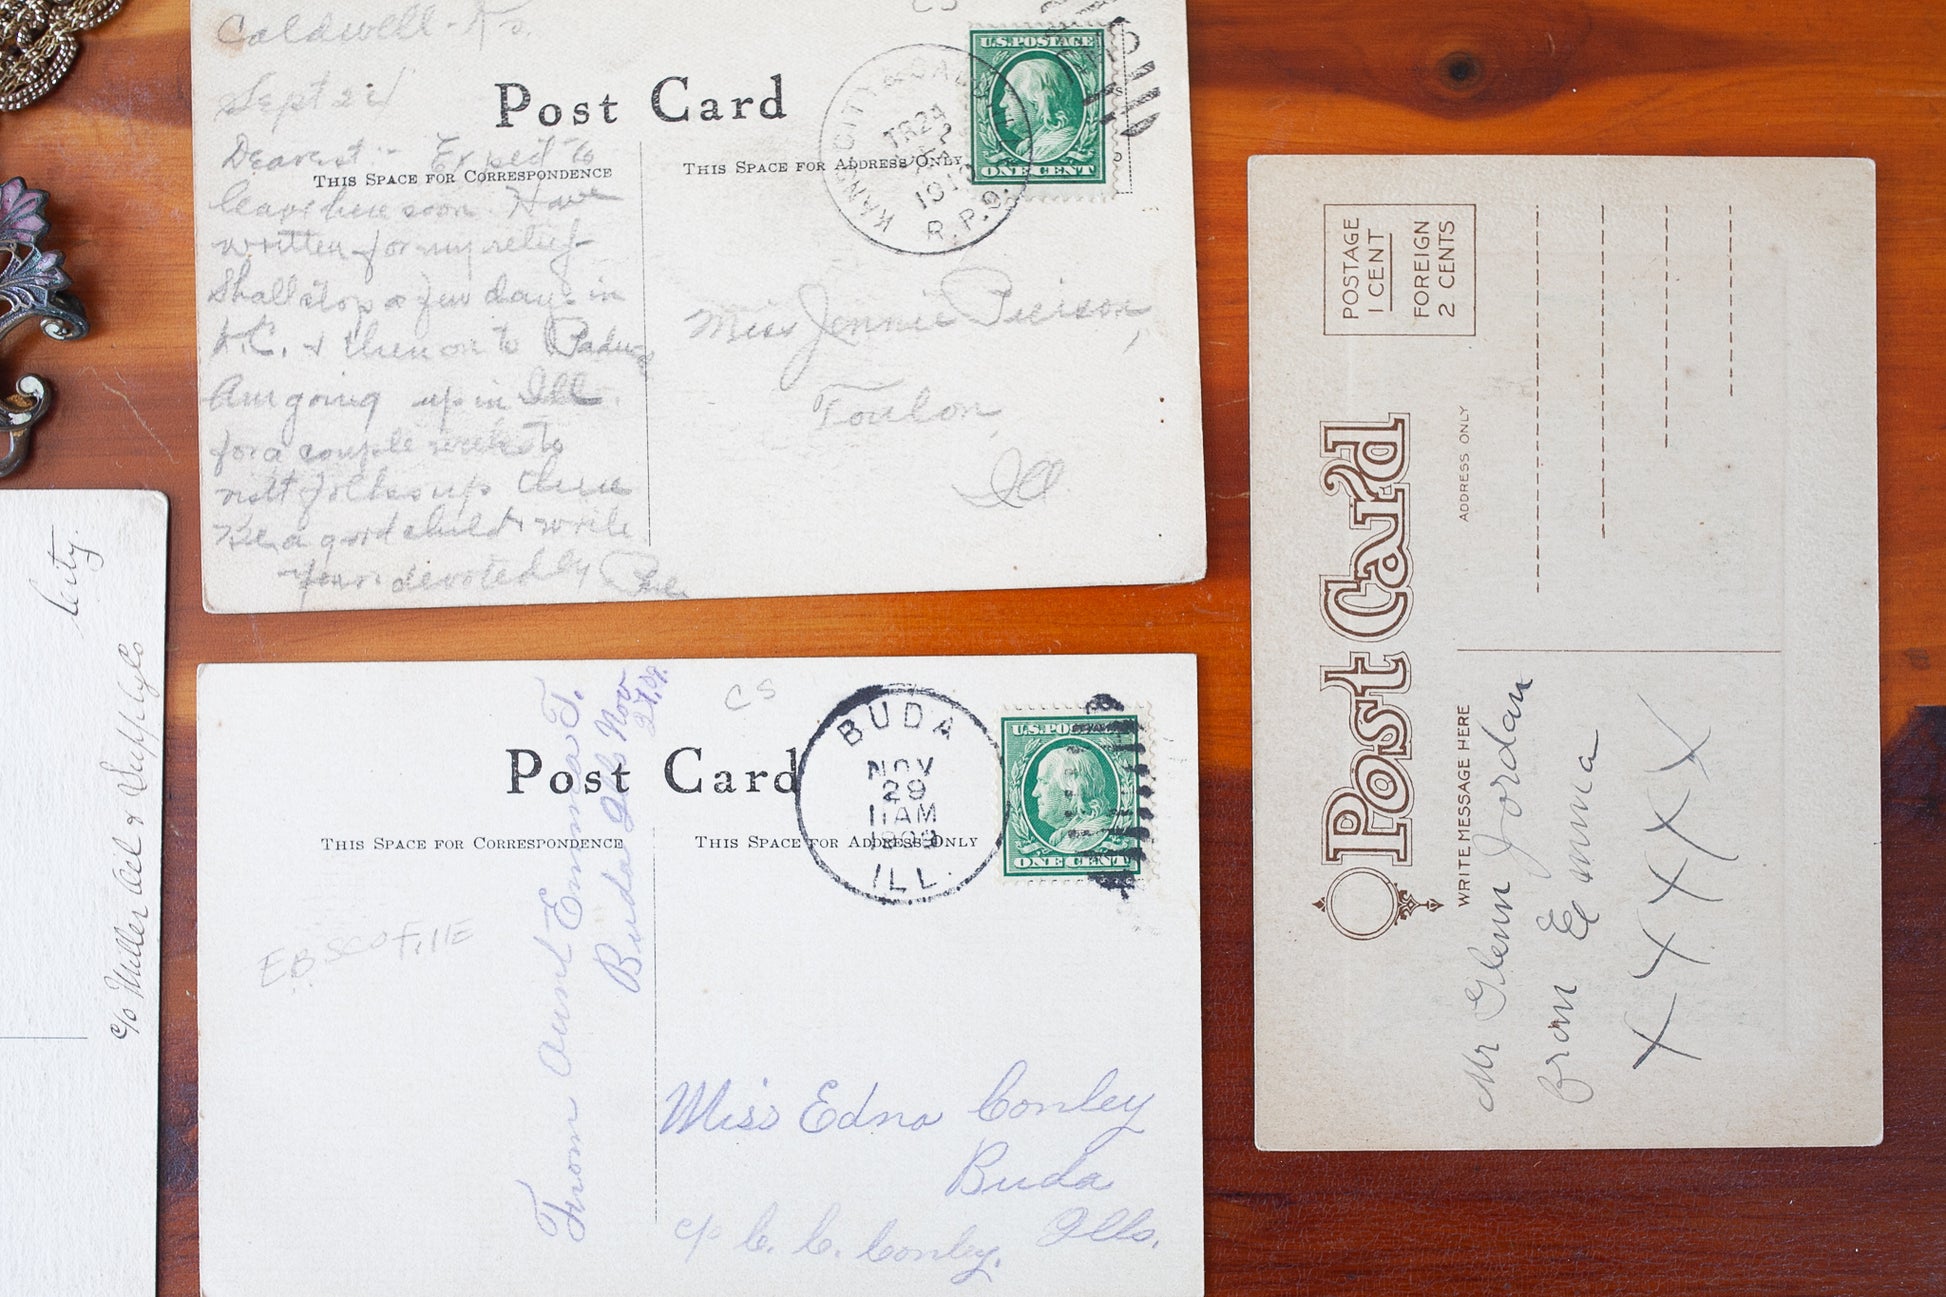 Caldwell-Ks.
Sept 24
Post Card
U.S. POSTAGE
ONE CENT
KANS. CITY &
TR 24
R.P.O.
THIS SPACE FOR CORRESPONDENCE
THIS SPACE FOR ADDRESS ONLY
Dearest:- Expect to
leave here soon. Have
written for my relief
Shall stop a few days in
K.C. & then on to
Am going up in Ill.
for a couple weeks to
visit folks up there
Be a good child & write
Yours devotedly
Miss Jennie Pierson,
Toulon,
Ill
city.
c/o Miller Oil &
CS
Post Card
BUDA
NOV
29
11 AM
1909
ILL.
U.S. POSTAGE
ONE CENT
THIS SPACE FOR CORRESPONDENCE
THIS SPACE FOR ADDRESS ONLY
From Aunt Emma T.
Buda Ills Nov
27.09.
EBSCOFille
Miss Edna Conley
Buda
Ills.
c/o C. C. Conley.
POSTAGE
1 CENT
FOREIGN
2 CENTS
Post Card
ADDRESS ONLY
WRITE MESSAGE HERE
Mr Glenn Jordan
from Emma
X X X X X